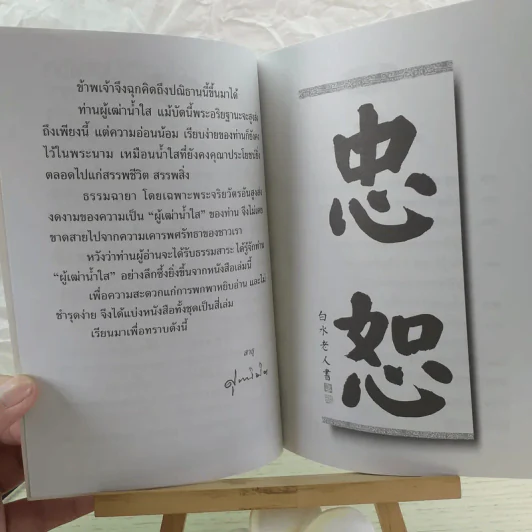 ข้าพเจ้าจึงฉุกคิดถึงปณิธานนี้ขึ้นมาได้
ท่านผู้เฒ่าน้ำใส แม้บัดนี้พระอริยฐานะจะสูงส่ง
ถึงเพียงนี้ แต่ความอ่อนน้อม เรียบง่ายของท่านก็ยังคง
ไว้ในพระนาม เหมือนน้ำใสที่ยังคงคุณาประโยชน์ยิ่ง
ตลอดไปแก่สรรพชีวิต สรรพสิ่ง
ธรรมฉายา โดยเฉพาะพระจริยวัตรอันสูงส่ง
งดงามของความเป็น “ผู้เฒ่าน้ำใส” ของท่าน จึงไม่เคย
ขาดสายไปจากความเคารพศรัทธาของชาวเรา
หวังว่าท่านผู้อ่านจะได้รับธรรมสาระ ได้รู้จักท่าน
“ผู้เฒ่าน้ำใส” อย่างลึกซึ้งยิ่งขึ้นจากหนังสือเล่มนี้
เพื่อความสะดวกแก่การพกพาหยิบอ่าน และไม่
ชำรุดง่าย จึงได้แบ่งหนังสือทั้งชุดเป็นสี่เล่ม
เรียนมาเพื่อทราบดังนี้
忠
恕
白水老人書